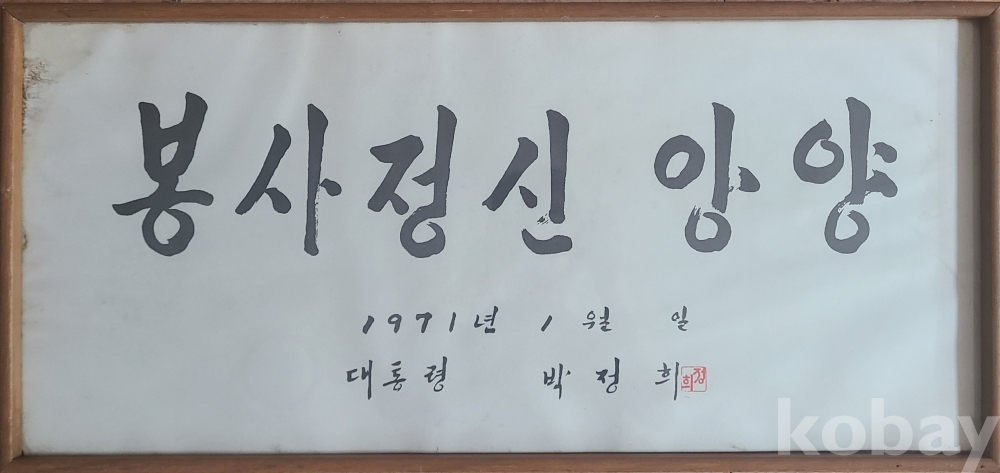 봉사정신 앙양
1971년 1월 일
대통령 박정희
정희
kobay